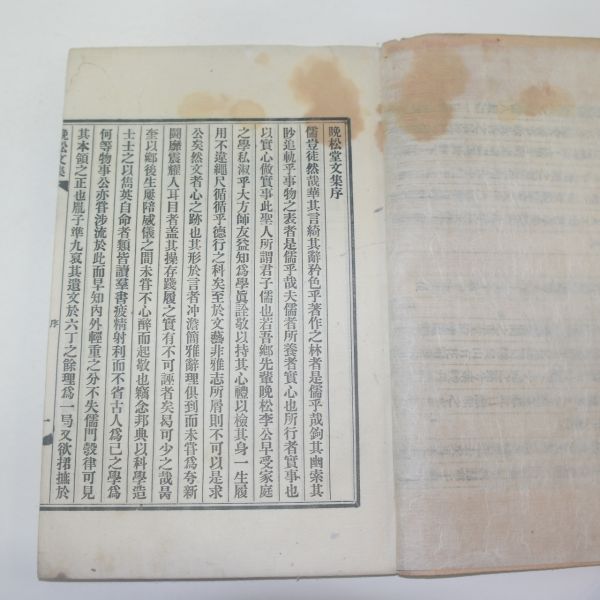 晩松堂文集序
儒豈徒然哉華其言綺其辭矜色乎著作之林者是儒乎哉鉤其幽索其
眇追軌乎事物之表者是儒乎哉夫儒者所養者實心也所行者實事也
以實心做實事此聖人所謂君子儒也若吾鄉先輩晩松李公早受家庭
之學私淑乎大方師友益知爲學眞詮敬以持其心禮以檢其身一生履
用不違繩尺循循乎德行之科矣至於文藝非雅志所屑則不可以是求
公矣然文者心之跡也其形於言者冲澹簡雅辭理俱到而未甞爲夸新
鬪靡震耀人耳目者盖其操存踐履之實有不可誣者矣曷可少之哉昺
奎以鄉後生屢陪威儀之間未甞不心醉而起敬也竊念邦典以科學造
士士之以雋英自命者類皆讀羣書疲精射利而不省古人爲己之學爲
何等物事公亦甞涉流於此而早知內外輕重之分不失儒門彀律可見
其本領之正也胤子準九哀其遺文於六丁之餘理爲一局又欲捃摭於
晩松文集
序
一